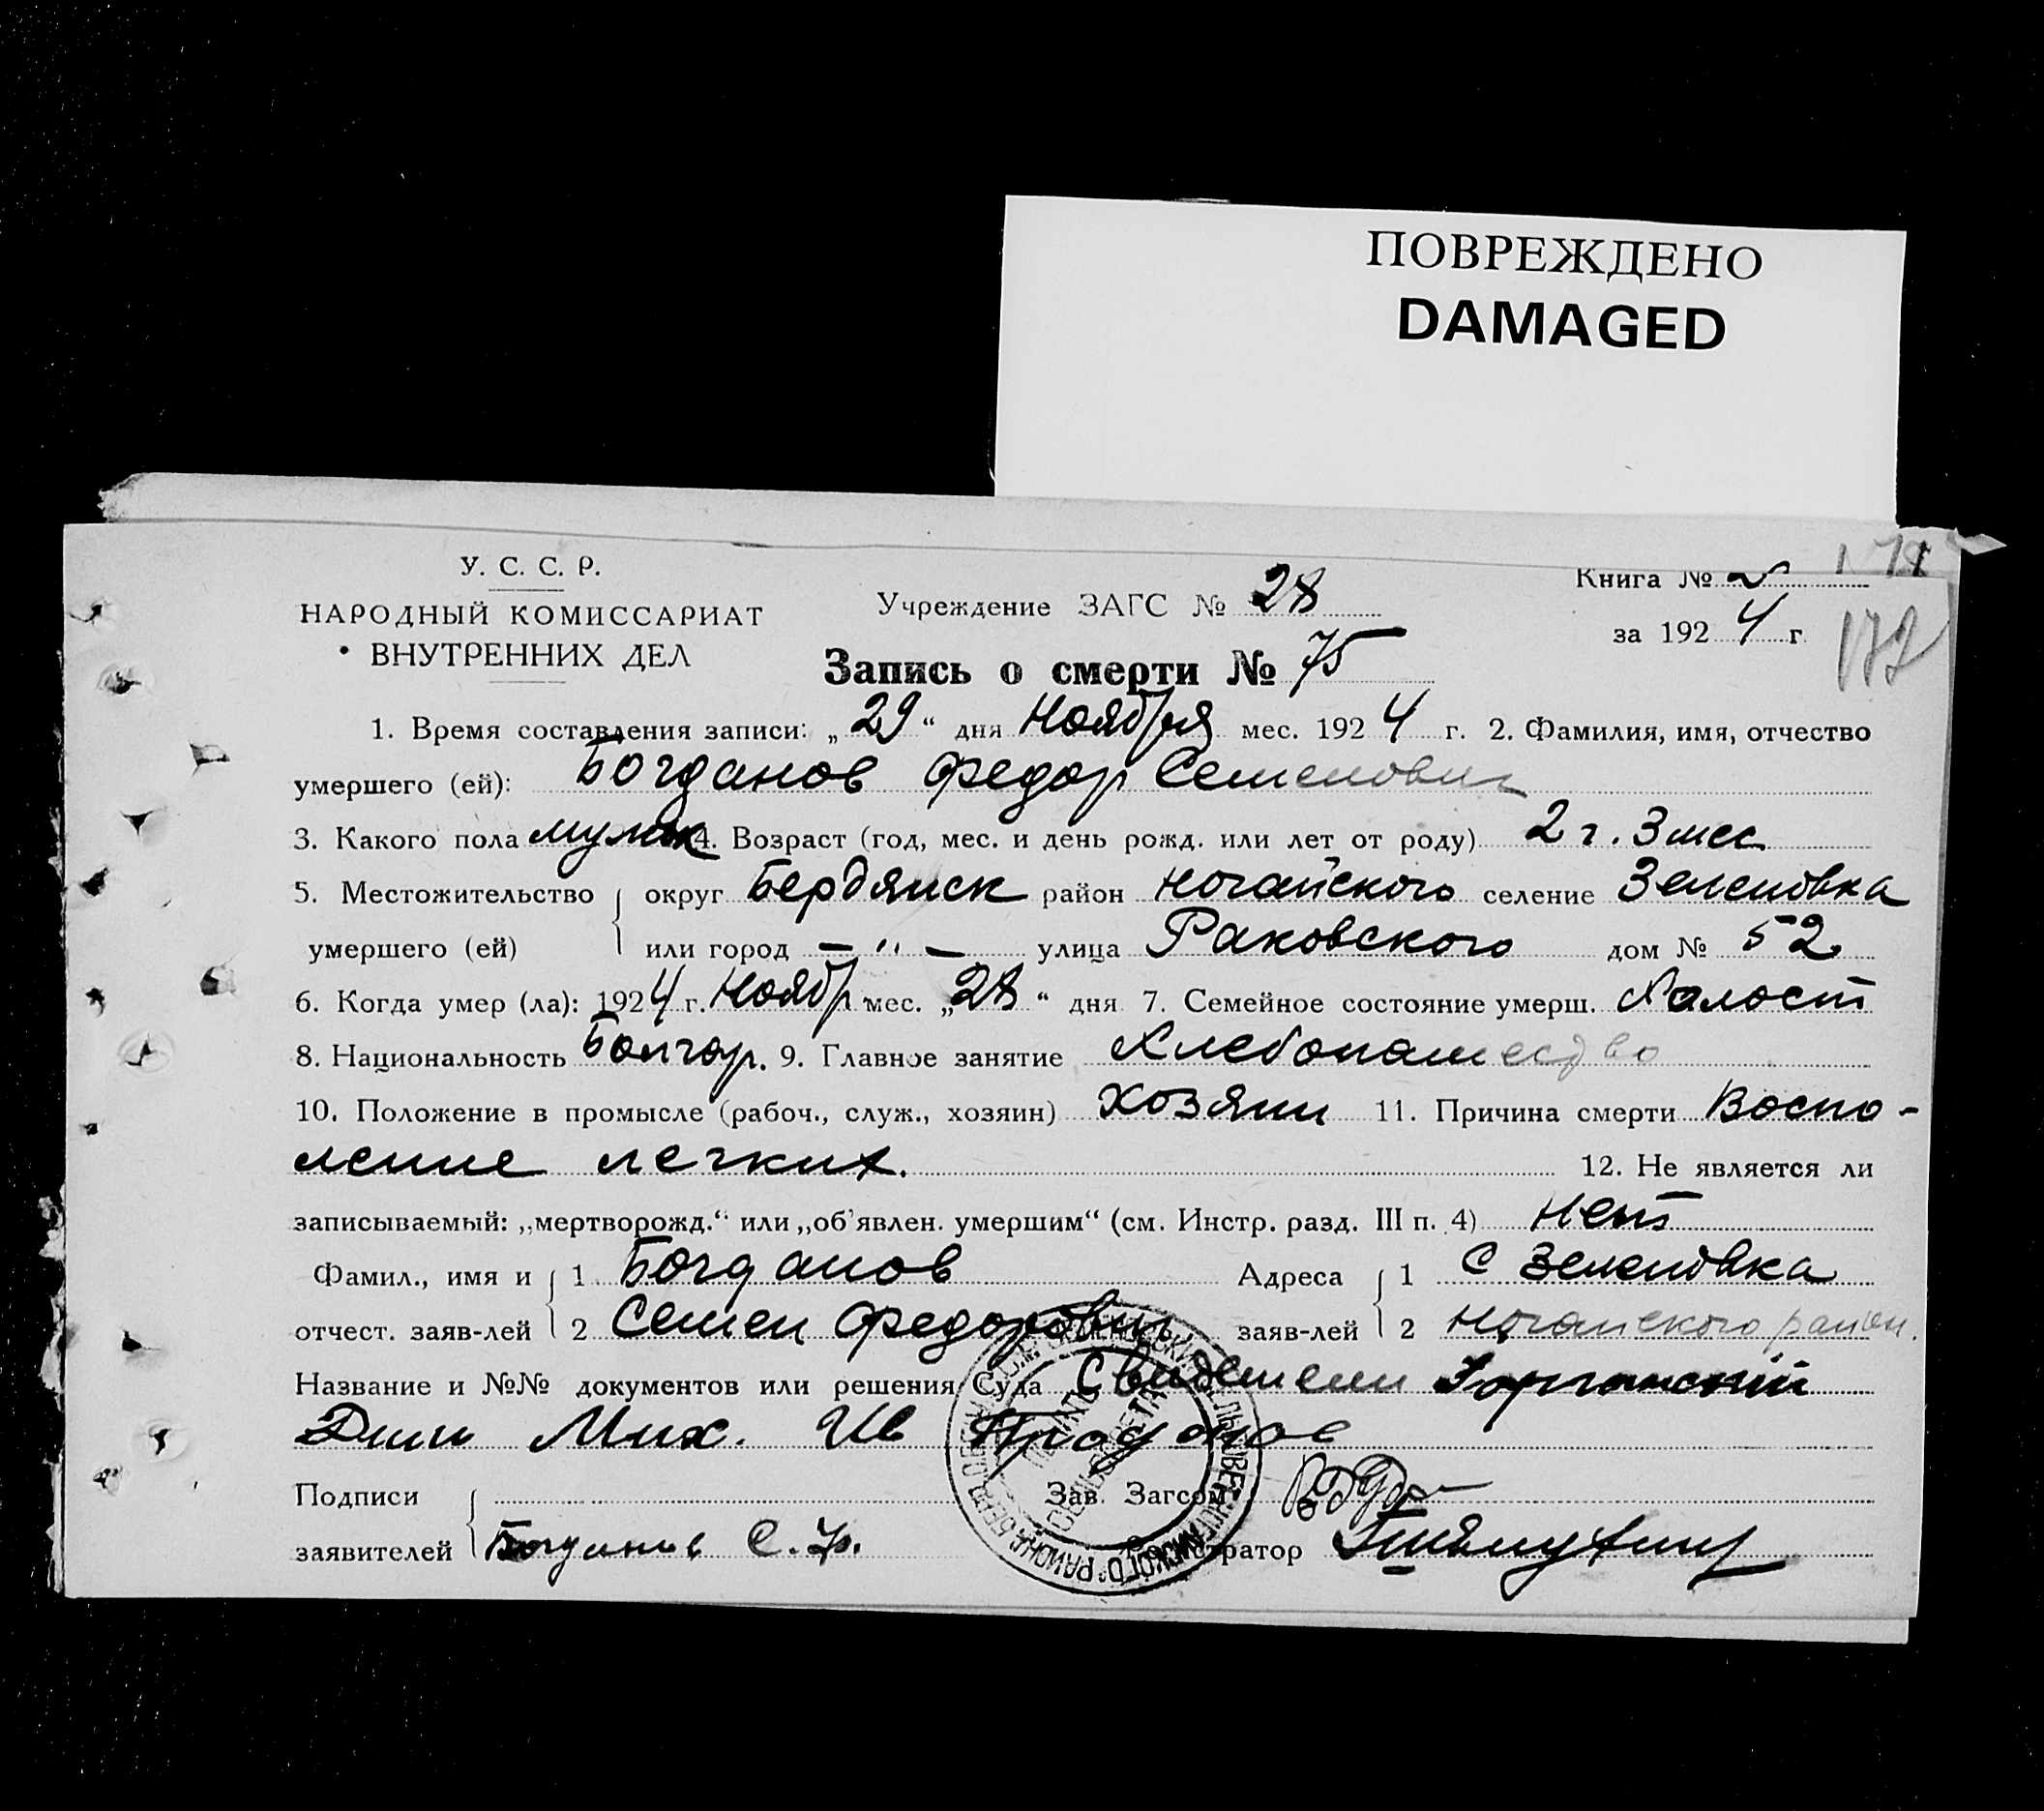 ПОВРЕЖДЕНО
DAMAGED
У. С. С. Р.
НАРОДНЫЙ КОМИССАРИАТ
ВНУТРЕННИХ ДЕЛ
Учреждение ЗАГС № 28
Книга №
за 1924 г.
172
Запись о смерти № 75
1. Время составления записи: „29“ дня Ноября мес. 1924 г. 2. Фамилия, имя, отчество
умершего (ей): Богданов Федор Семенович
3. Какого пола мужск 4. Возраст (год, мес. и день рожд. или лет от роду) 2 г. 3 мес
5. Местожительство округ Бердянск район Ногайского селение Зеленовка
умершего (ей) или город — " — улица Раковского дом № 52
6. Когда умер (ла): 1924 г. Ноябр. мес. „28“ дня 7. Семейное состояние умерш. Холост
8. Национальность Болгар. 9. Главное занятие Хлебопашество
10. Положение в промысле (рабоч., служ., хозяин) хозяин 11. Причина смерти Воспо-
ление легких. 12. Не является ли
записываемый: „мертворожд.“ или „об'явлен. умершим“ (см. Инстр. разд. III п. 4) Нет
Фамил., имя и 1 Богданов Адреса 1 С Зеленовка
отчест. заяв-лей 2 Семен Федорович заяв-лей 2 Ногайского район.
Название и №№ документов или решения Суда Свидетели
Мих. Ив
Подписи Зав. Загсом
заявителей Богданов С. Ф. Регистратор